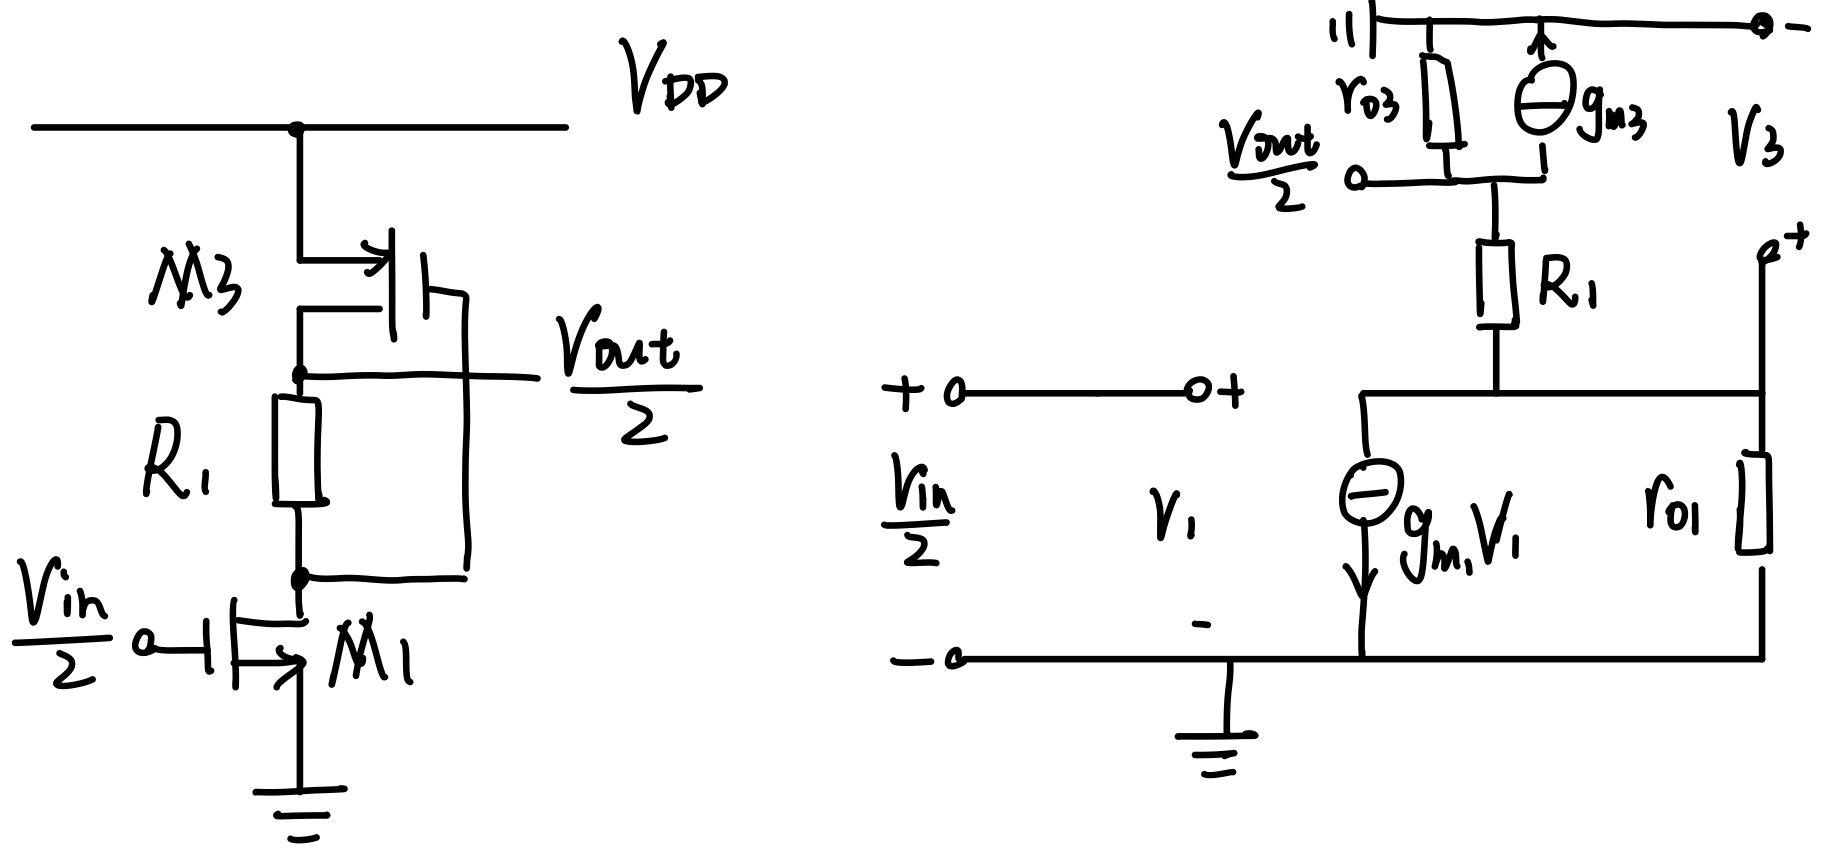 V_DD
M3
V_out/2
R_1
V_in/2
M1
r_o3
g_m3
V_3
V_out/2
R_1
+
+
+
-
V_in/2
V_1
g_m1 V_1
r_o1
-
-